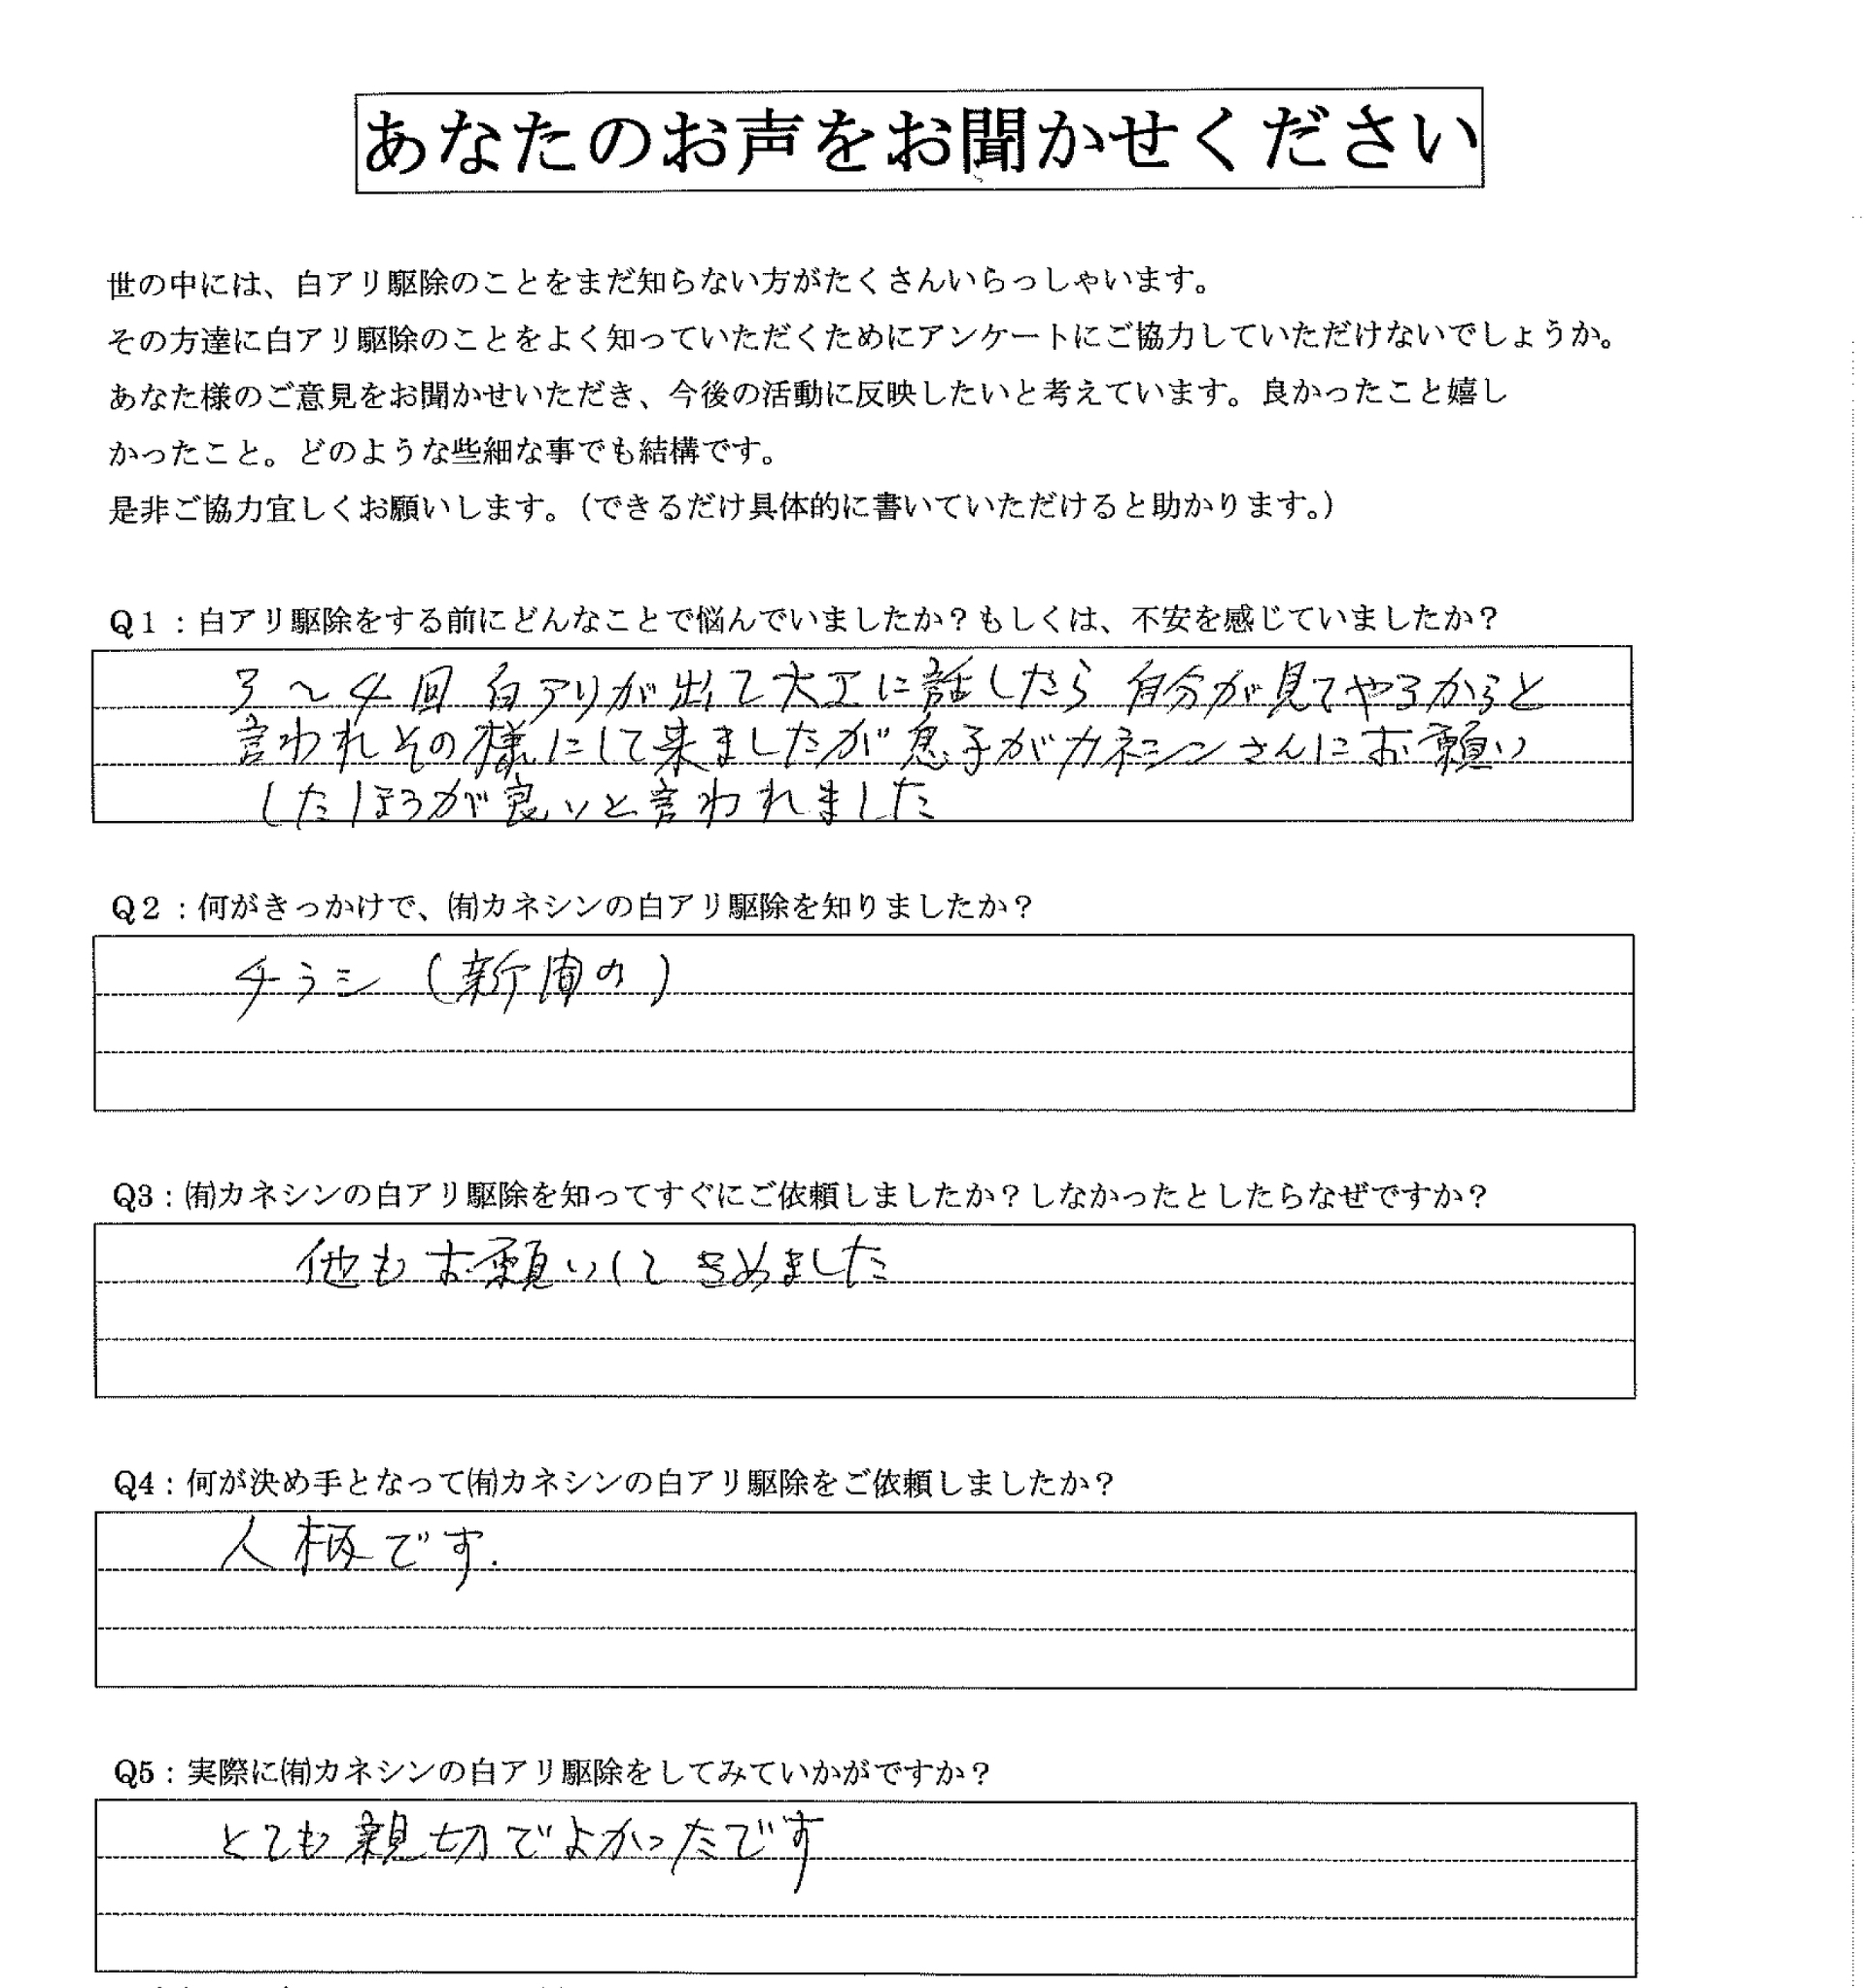 あなたのお声をお聞かせください
世の中には、白アリ駆除のことをまだ知らない方がたくさんいらっしゃいます。
その方達に白アリ駆除のことをよく知っていただくためにアンケートにご協力していただけないでしょうか。
あなた様のご意見をお聞かせいただき、今後の活動に反映したいと考えています。良かったこと嬉し
かったこと。どのような些細な事でも結構です。
是非ご協力宜しくお願いします。（できるだけ具体的に書いていただけると助かります。）
Q１：白アリ駆除をする前にどんなことで悩んでいましたか？もしくは、不安を感じていましたか？
3～4回 白アリが出て大工に話したら 自分が見てやるからと
言われその様にして来ましたが息子がカネシンさんにお願い
したほうが良いと言われました
Q２：何がきっかけで、㈲カネシンの白アリ駆除を知りましたか？
チラシ（新聞の）
Q3：㈲カネシンの白アリ駆除を知ってすぐにご依頼しましたか？しなかったとしたらなぜですか？
他もお願いして きめました
Q4：何が決め手となって㈲カネシンの白アリ駆除をご依頼しましたか？
人柄です.
Q5：実際に㈲カネシンの白アリ駆除をしてみていかがですか？
とても親切でよかったです